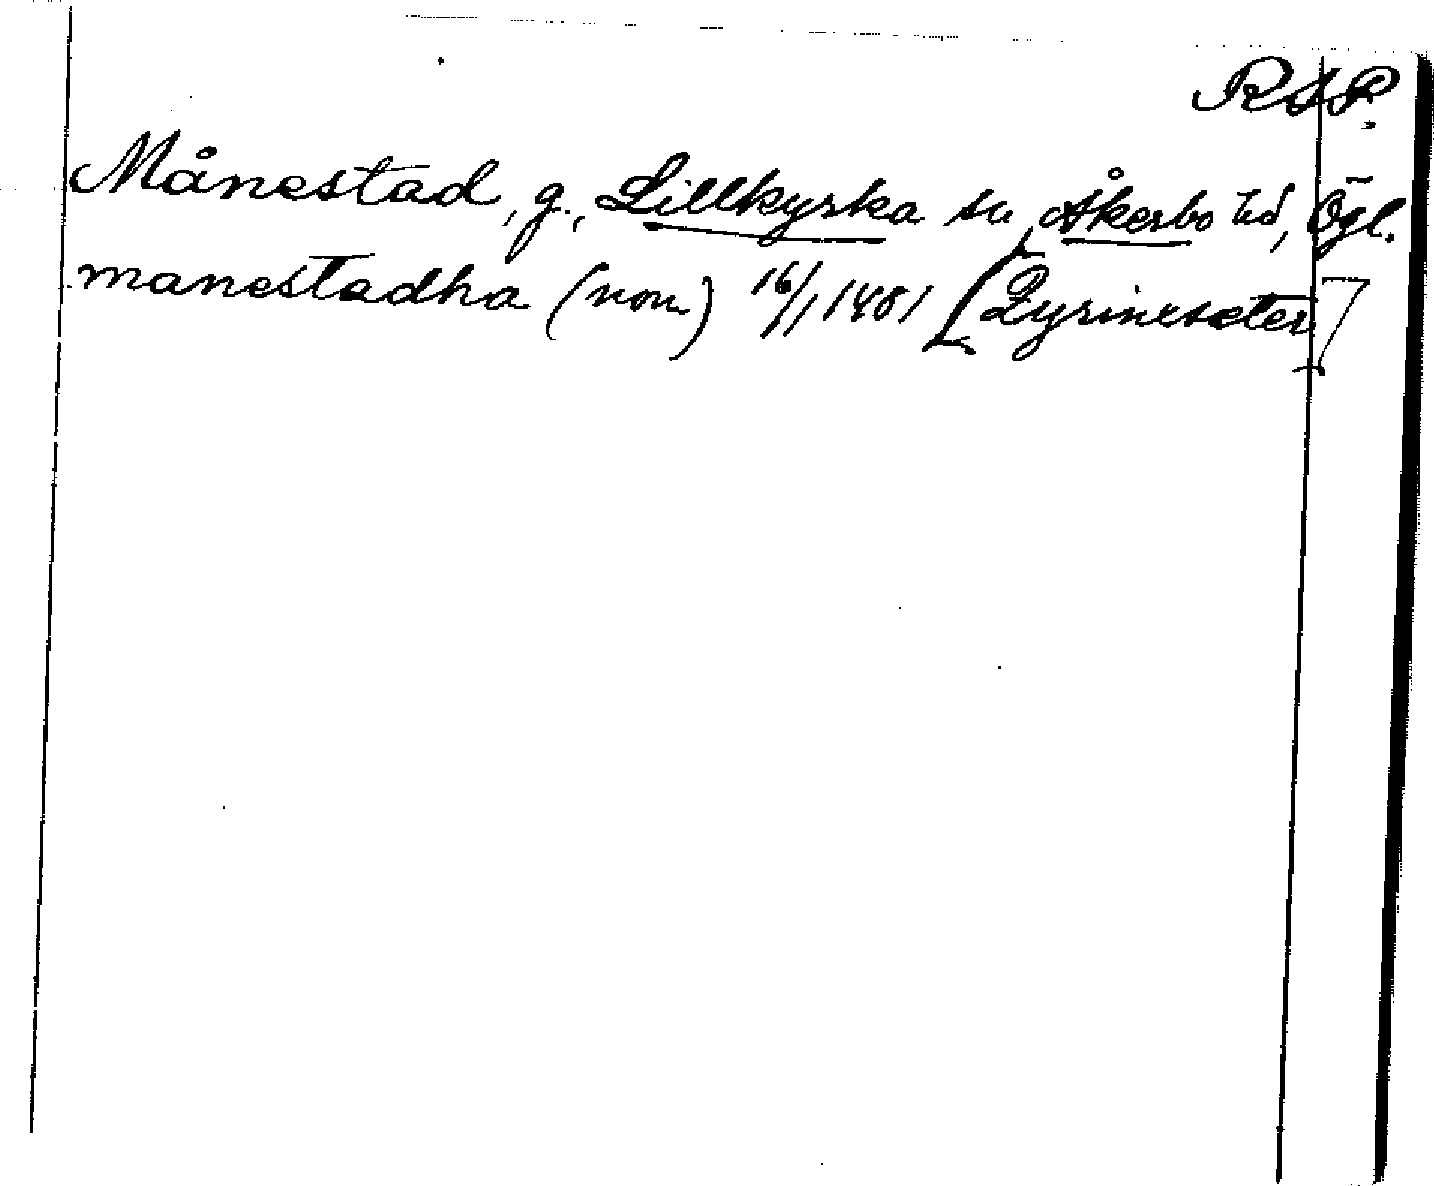 RAP.
Månestad, g., Lillkyrka sn, Åkerbo hd, Ögl.
manestadha (nom) 16/1 1401 [Zyrineseter]